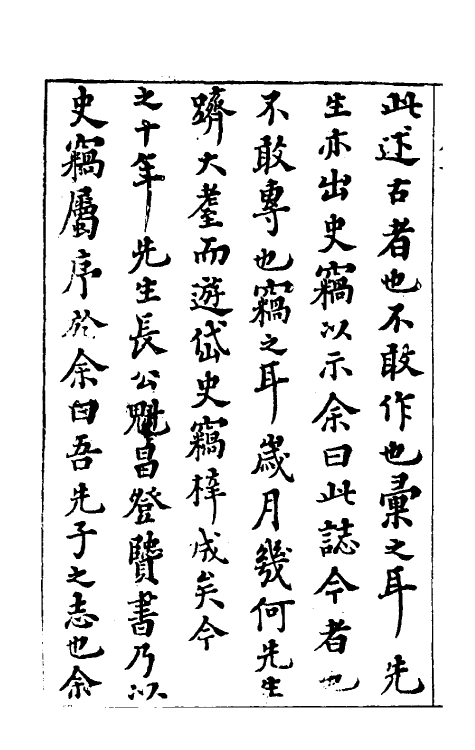 此述古者也不敢作也彚之耳先
生亦出史竊以示余曰此誌今者也
不敢專也竊之耳嵗月幾何先生
躋大耋而遊岱史竊梓成矣今
之十年先生長公魁昌登賢書乃以
史竊屬序於余曰吾先子之志也余